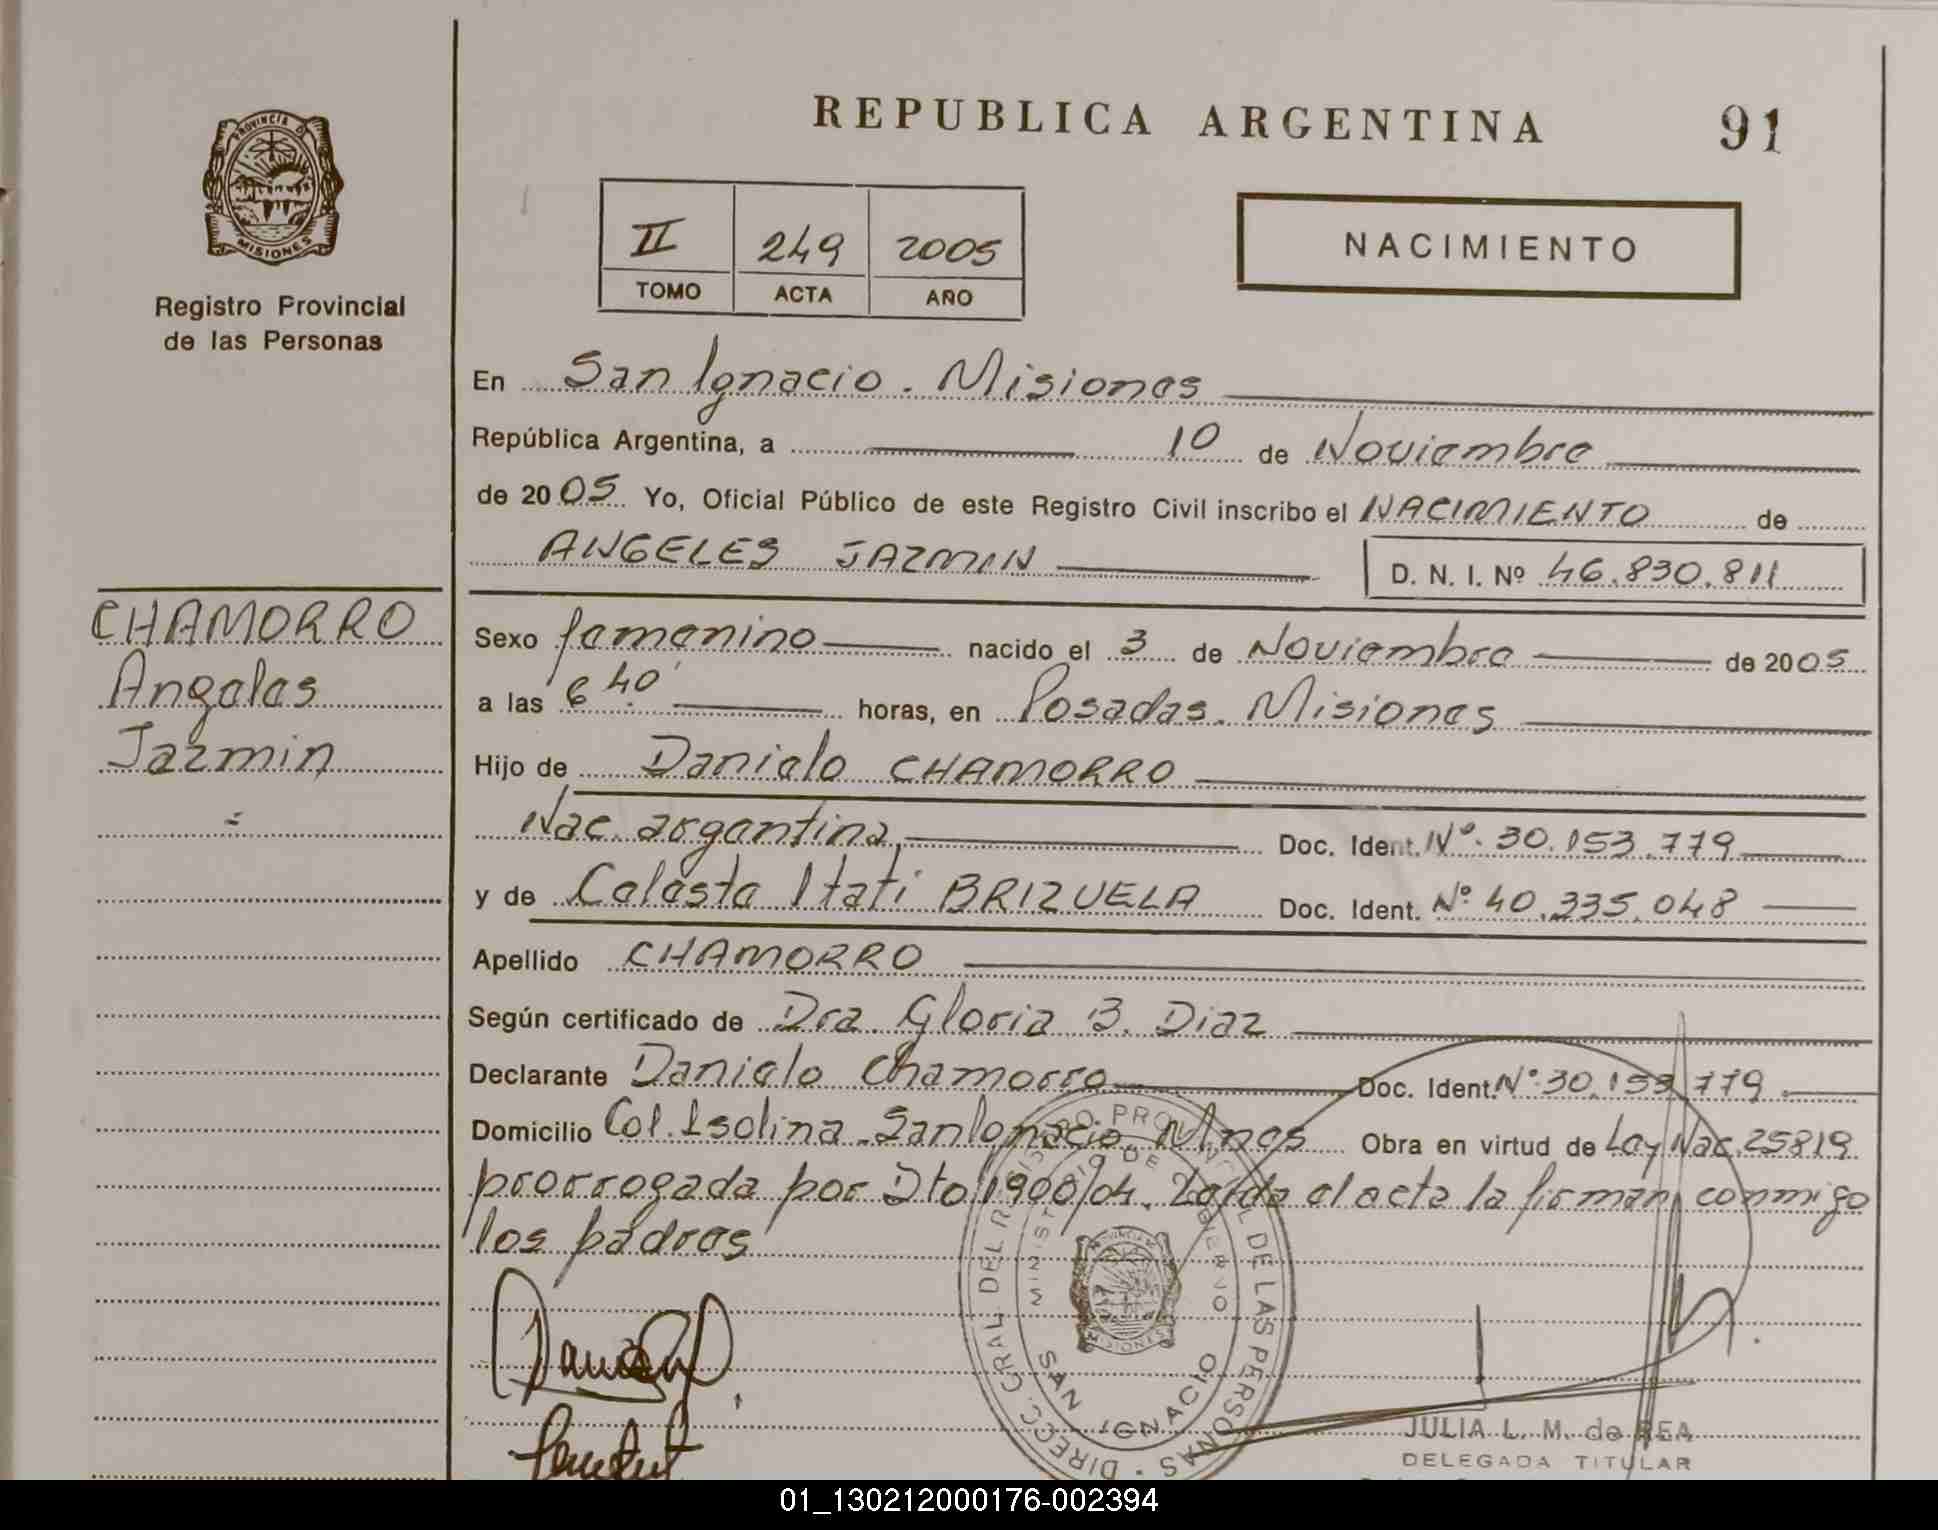 REPUBLICA ARGENTINA
91
PROVINCIA D
MISIONES
Registro Provincial
de las Personas
II 249 2005
TOMO ACTA AÑO
NACIMIENTO
En San Ignacio. Misiones
República Argentina, a 10 de Noviembre
de 2005 Yo, Oficial Público de este Registro Civil inscribo el NACIMIENTO de
ANGELES JAZMIN
D. N. I. Nº 46.830.811
CHAMORRO
Angeles
Jazmin
Sexo femenino nacido el 3 de Noviembre de 2005
a las 6 40' horas, en Posadas. Misiones
Hijo de Danielo CHAMORRO
Nac. argentina, Doc. Ident. Nº. 30.153.779
y de Celeste Itati BRIZUELA Doc. Ident. Nº 40.335.048
Apellido CHAMORRO
Según certificado de Dra. Gloria B. Diaz
Declarante Danielo Chamorro Doc. Ident. Nº 30.153.779
Domicilio Col. Isolina San Ignacio. Mnes Obra en virtud de Ley Nac. 25819
prorrogada por Dto 1900/04. Leída el acta la firman conmigo
los padres
DIRECC. GRAL. DEL REGISTRO PROVINCIAL DE LAS PERSONAS
MINISTERIO DE GOBIERNO
SAN IGNACIO
MISIONES
JULIA L. M. de REA
DELEGADA TITULAR
01_130212000176-002394